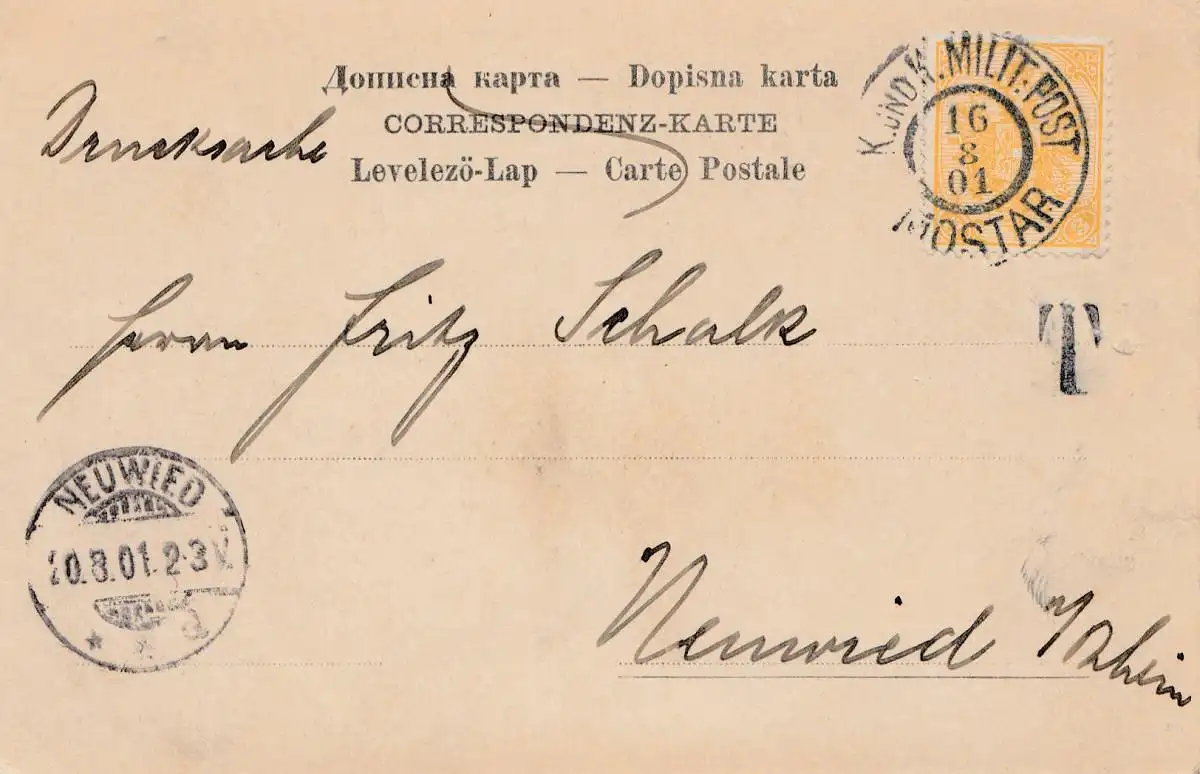 Дописна карта — Dopisna karta
CORRESPONDENZ-KARTE
Levelezö-Lap — Carte Postale
Drucksache
K. UND K. MILIT. POST
16
8
01
MOSTAR
T
Herrn Fritz Schalk
NEUWIED
20.8.01. 2-3 V.
d
Neuwied a/Rhein